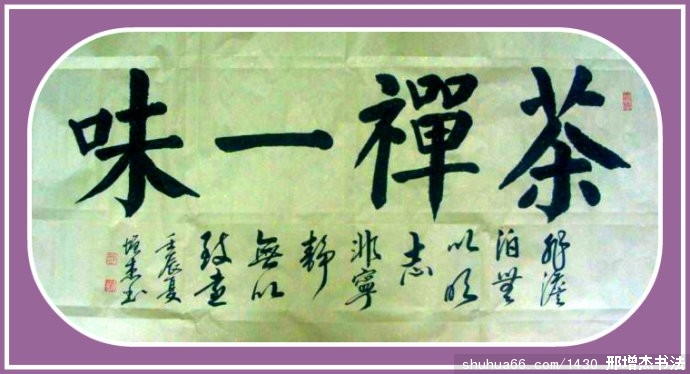 茶禪一味
非淡
泊無
以明
志
非寧
靜
無以
致遠
壬辰夏
增杰书
shuhua66.com/1430 邢增杰书法